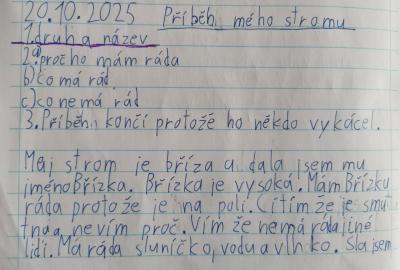 20.10.2025 Příběh mého stromu
1.druh a název
2.a)proč ho mám ráda
b)co má rád
c)co nemá rád
3.Příběh končí protožě ho někdo vykácel.
Můj strom je bříza a dala jsem mu
jméno Břízka. Břízka je vysoká. Mám Břízku
ráda protože je na poli. Cítím že je smu
tná a nevím proč. Vím že nemá ráda jiné
lidi. Má ráda sluníčko, vodu a vlhko. Šla jsem